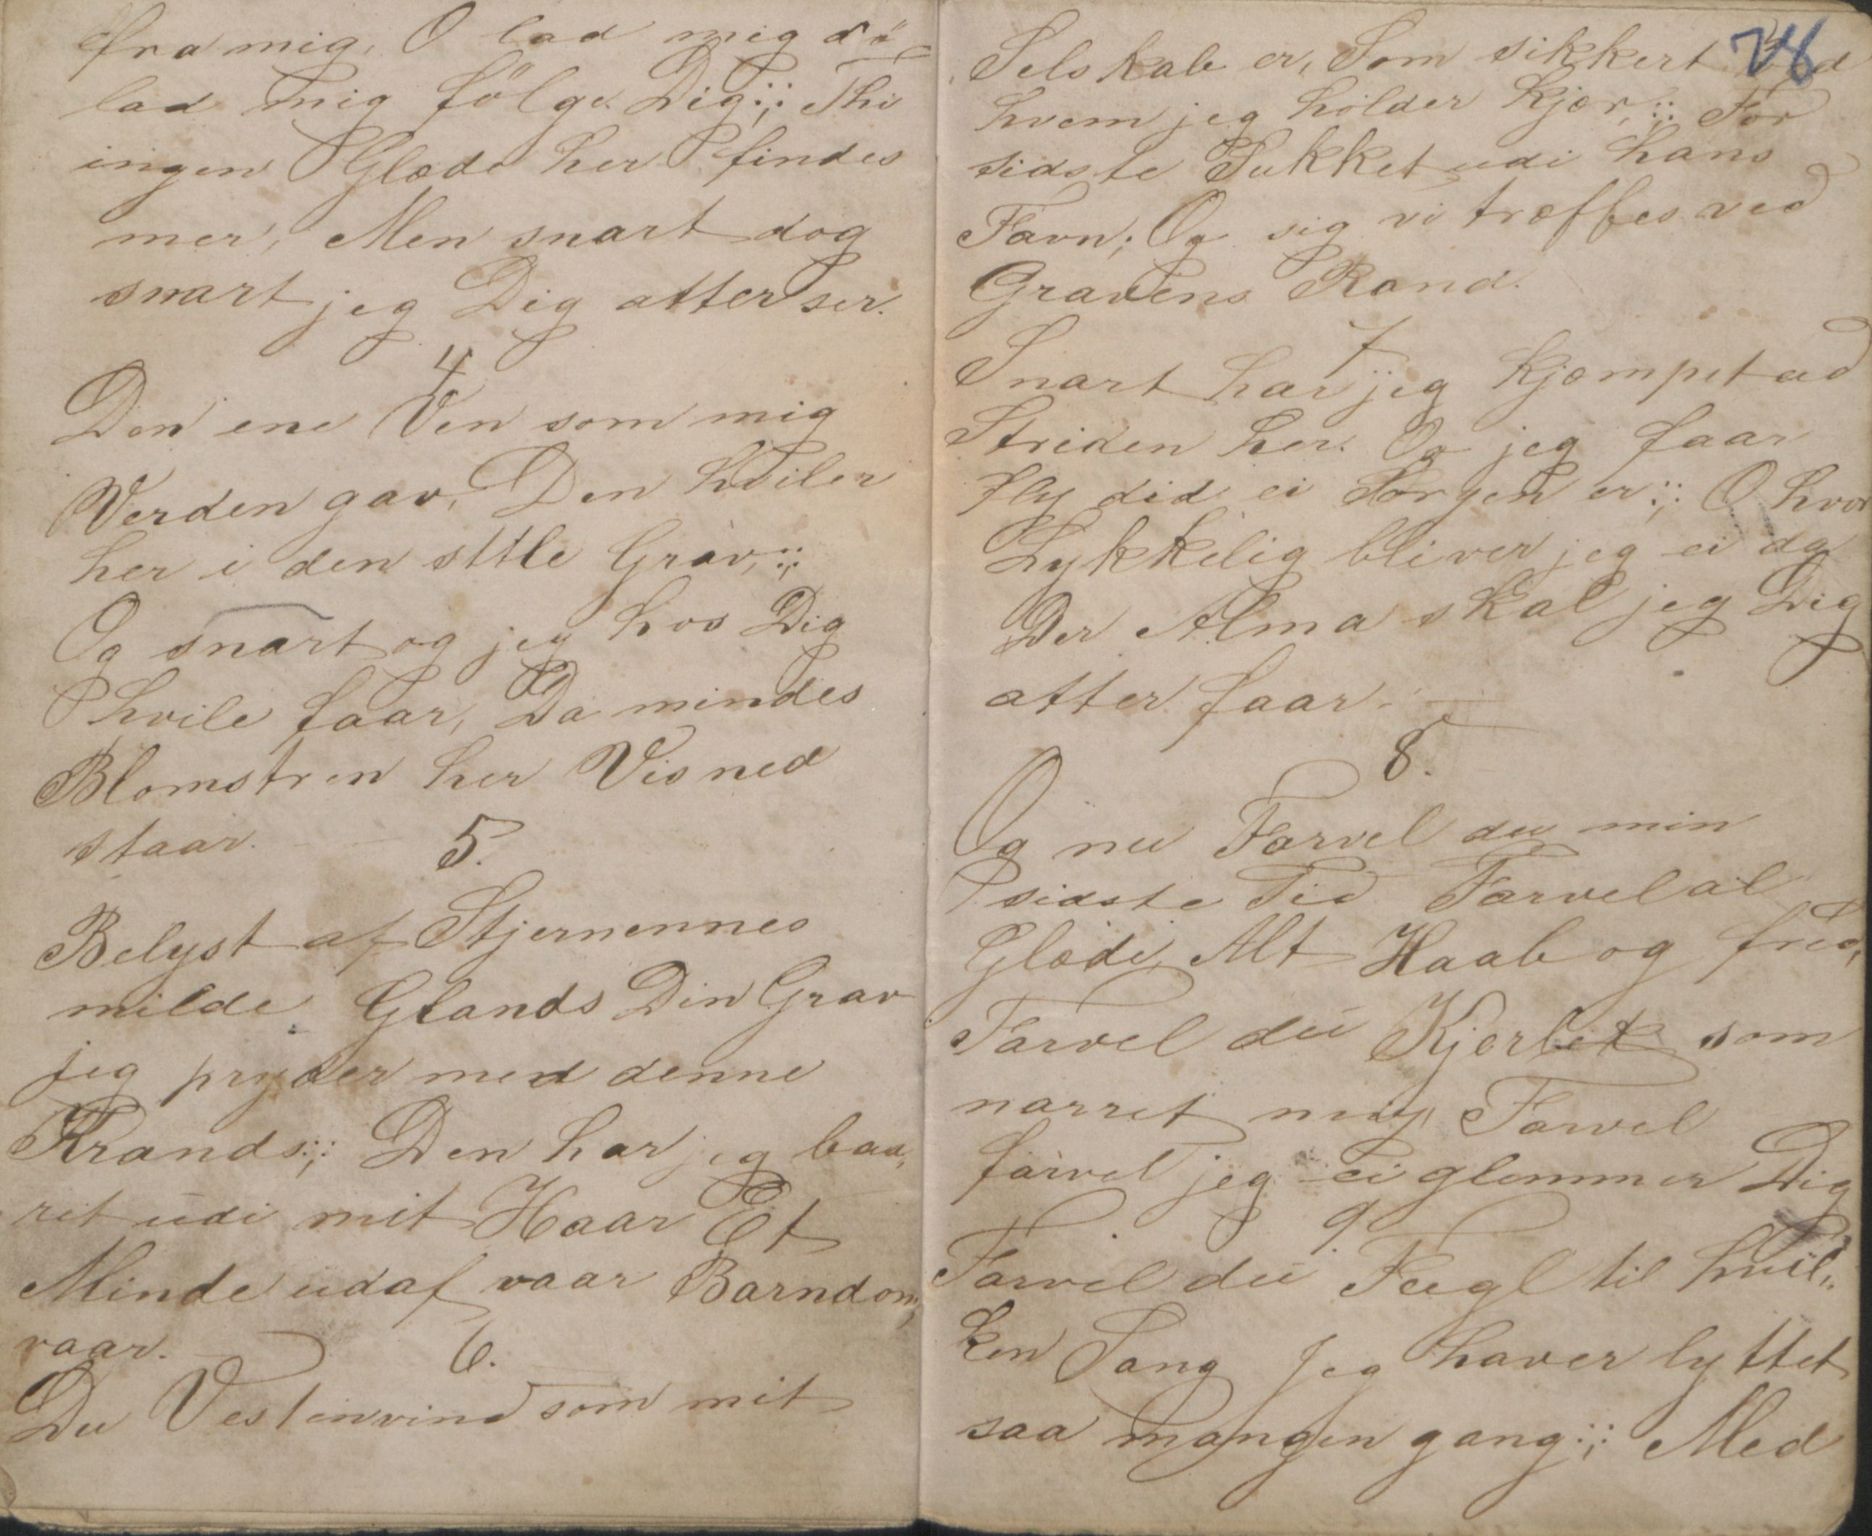 fra mig, O lad mig dö
lad mig fölge Dig;:; Thi
ingen Glæde her findes
mer, Men snart dog
snart jeg Dig atter ser.
4
Den ene Ven som mig
Verden gav, Den hviler
her i den sttle Grav,:;
Og snart og jeg hos Dig
hvile faar, Da mindes
Blomstren her Visned
staar.
5.
Belyst af Stjernennes
milde Glands Din Grav
jeg pryder med denne
Krands:;: Den har jeg baa,
ret udi mit Haar Et
Minde udaf vaar Barndom,
vaar.
6.
Du Vestenvind som mit
78
Selskab er, Som sikkert
hvem jeg holder kjær,:; For
sidste Sukket udi hans
Favn; Og sig vi træffes ved
Gravens Rand.
7
Snart har jeg kjæmpet ud
Striden her. Og jeg faar
fly did ei Sorgen er:;: O hvor
Lykkelig bliver jeg ei da
Der Alma skal jeg Dig
atter faar.
8.
Og nu Farvel du min
sidste Tid Farvel al
Glæde, Alt Haab og fred,
Farvel du Kjerlet som
narret mig, Farvel
farvel jeg ei glemmer Dig
9
Farvel du Fugl til hvil,
ken Sang Jeg haver lyttet
saa mangen gang:;: Med